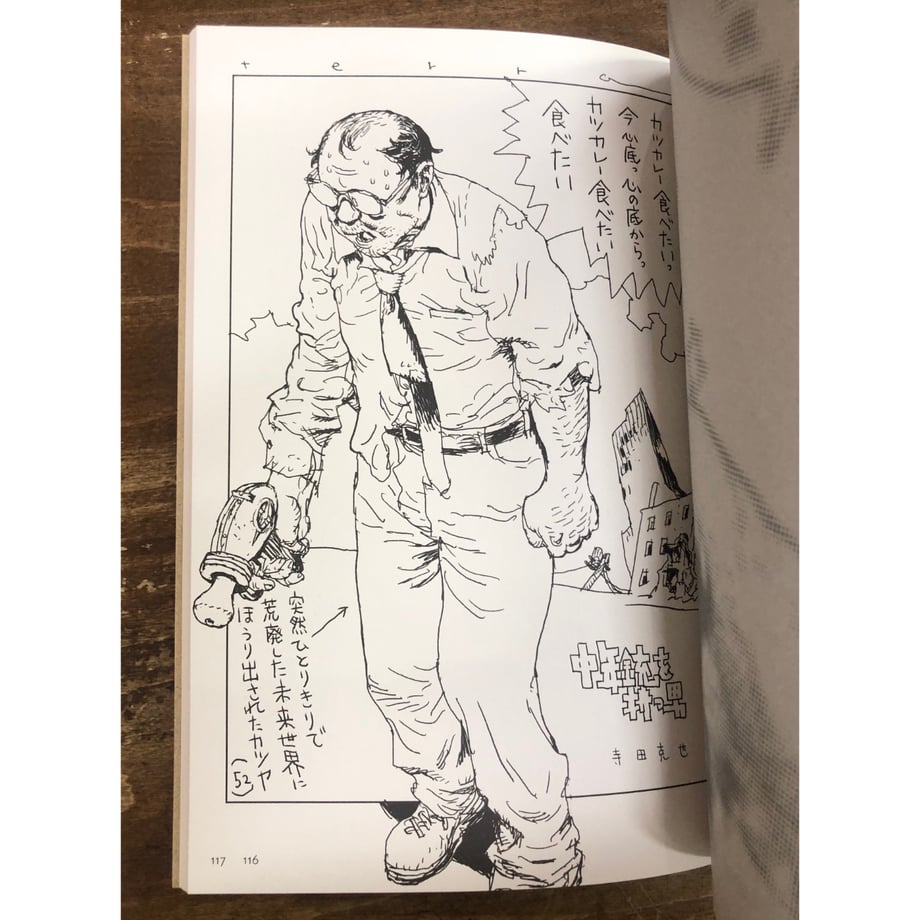 t e r r
カツカレー食べたいっ
今心底っ心の底からっ
カツカレー食べたい
食べたい
突然ひとりきりで
荒廃した未来世界に
ほうり出されたカツヤ(52)
中年銃を
持つ男
寺田克也
117 116